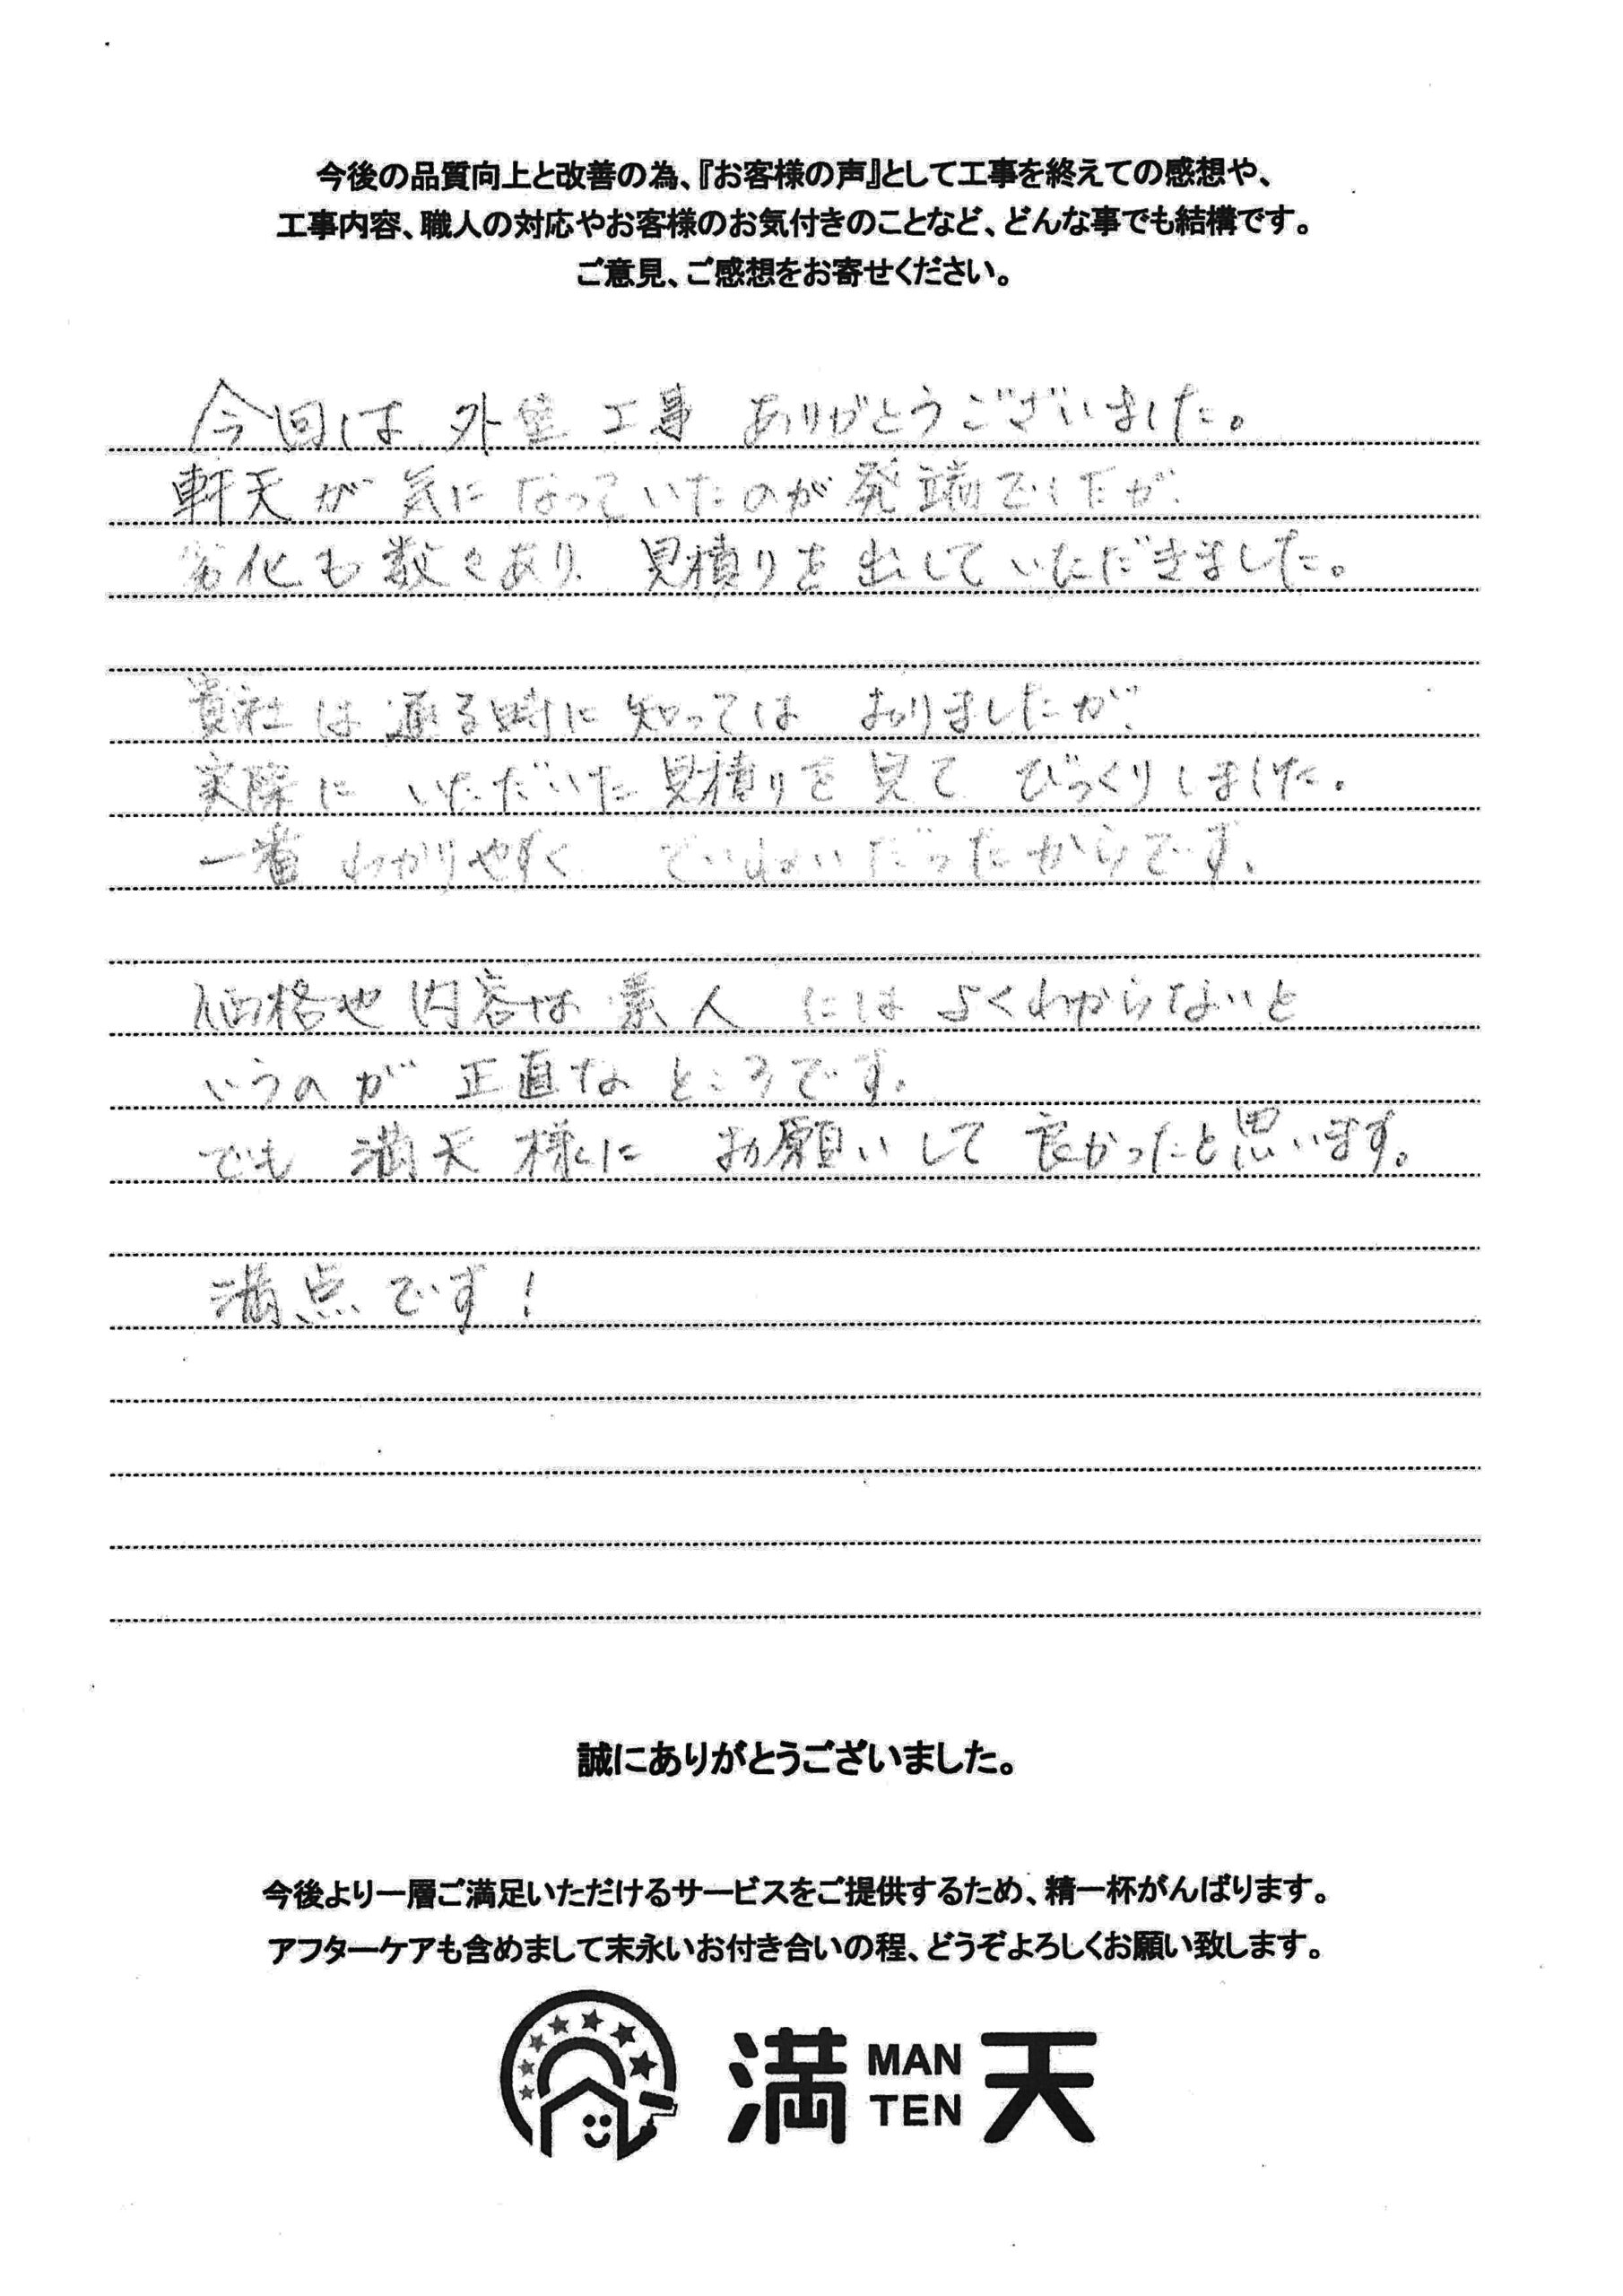 今後の品質向上と改善の為、『お客様の声』として工事を終えての感想や、
工事内容、職人の対応やお客様のお気付きのことなど、どんな事でも結構です。
ご意見、ご感想をお寄せください。
今回は、外壁工事 ありがとうございました。
軒天が気になっていたのが発端でしたが、
劣化も数々あり、見積りを出していただきました。
貴社は通る時に知ってはおりましたが、
実際にいただいた見積りを見てびっくりしました。
一番わかりやすく ていねいだったからです。
価格也内容は素人にはよくわからないと
いうのが正直なところです。
でも満天様にお願いして良かったと思います。
満点です!
誠にありがとうございました。
今後より一層ご満足いただけるサービスをご提供するため、精一杯がんばります。
アフターケアも含めまして末永いお付き合いの程、どうぞよろしくお願い致します。
満 MAN TEN 天